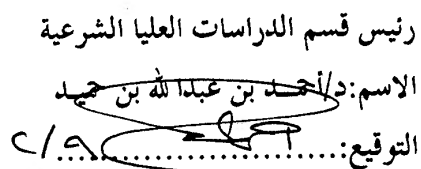 رئيس قسم الدراسات العليا الشرعية
الاسم:د/أحمد بن عبدالله بن حميد
التوقيع:........................ ٢/٩